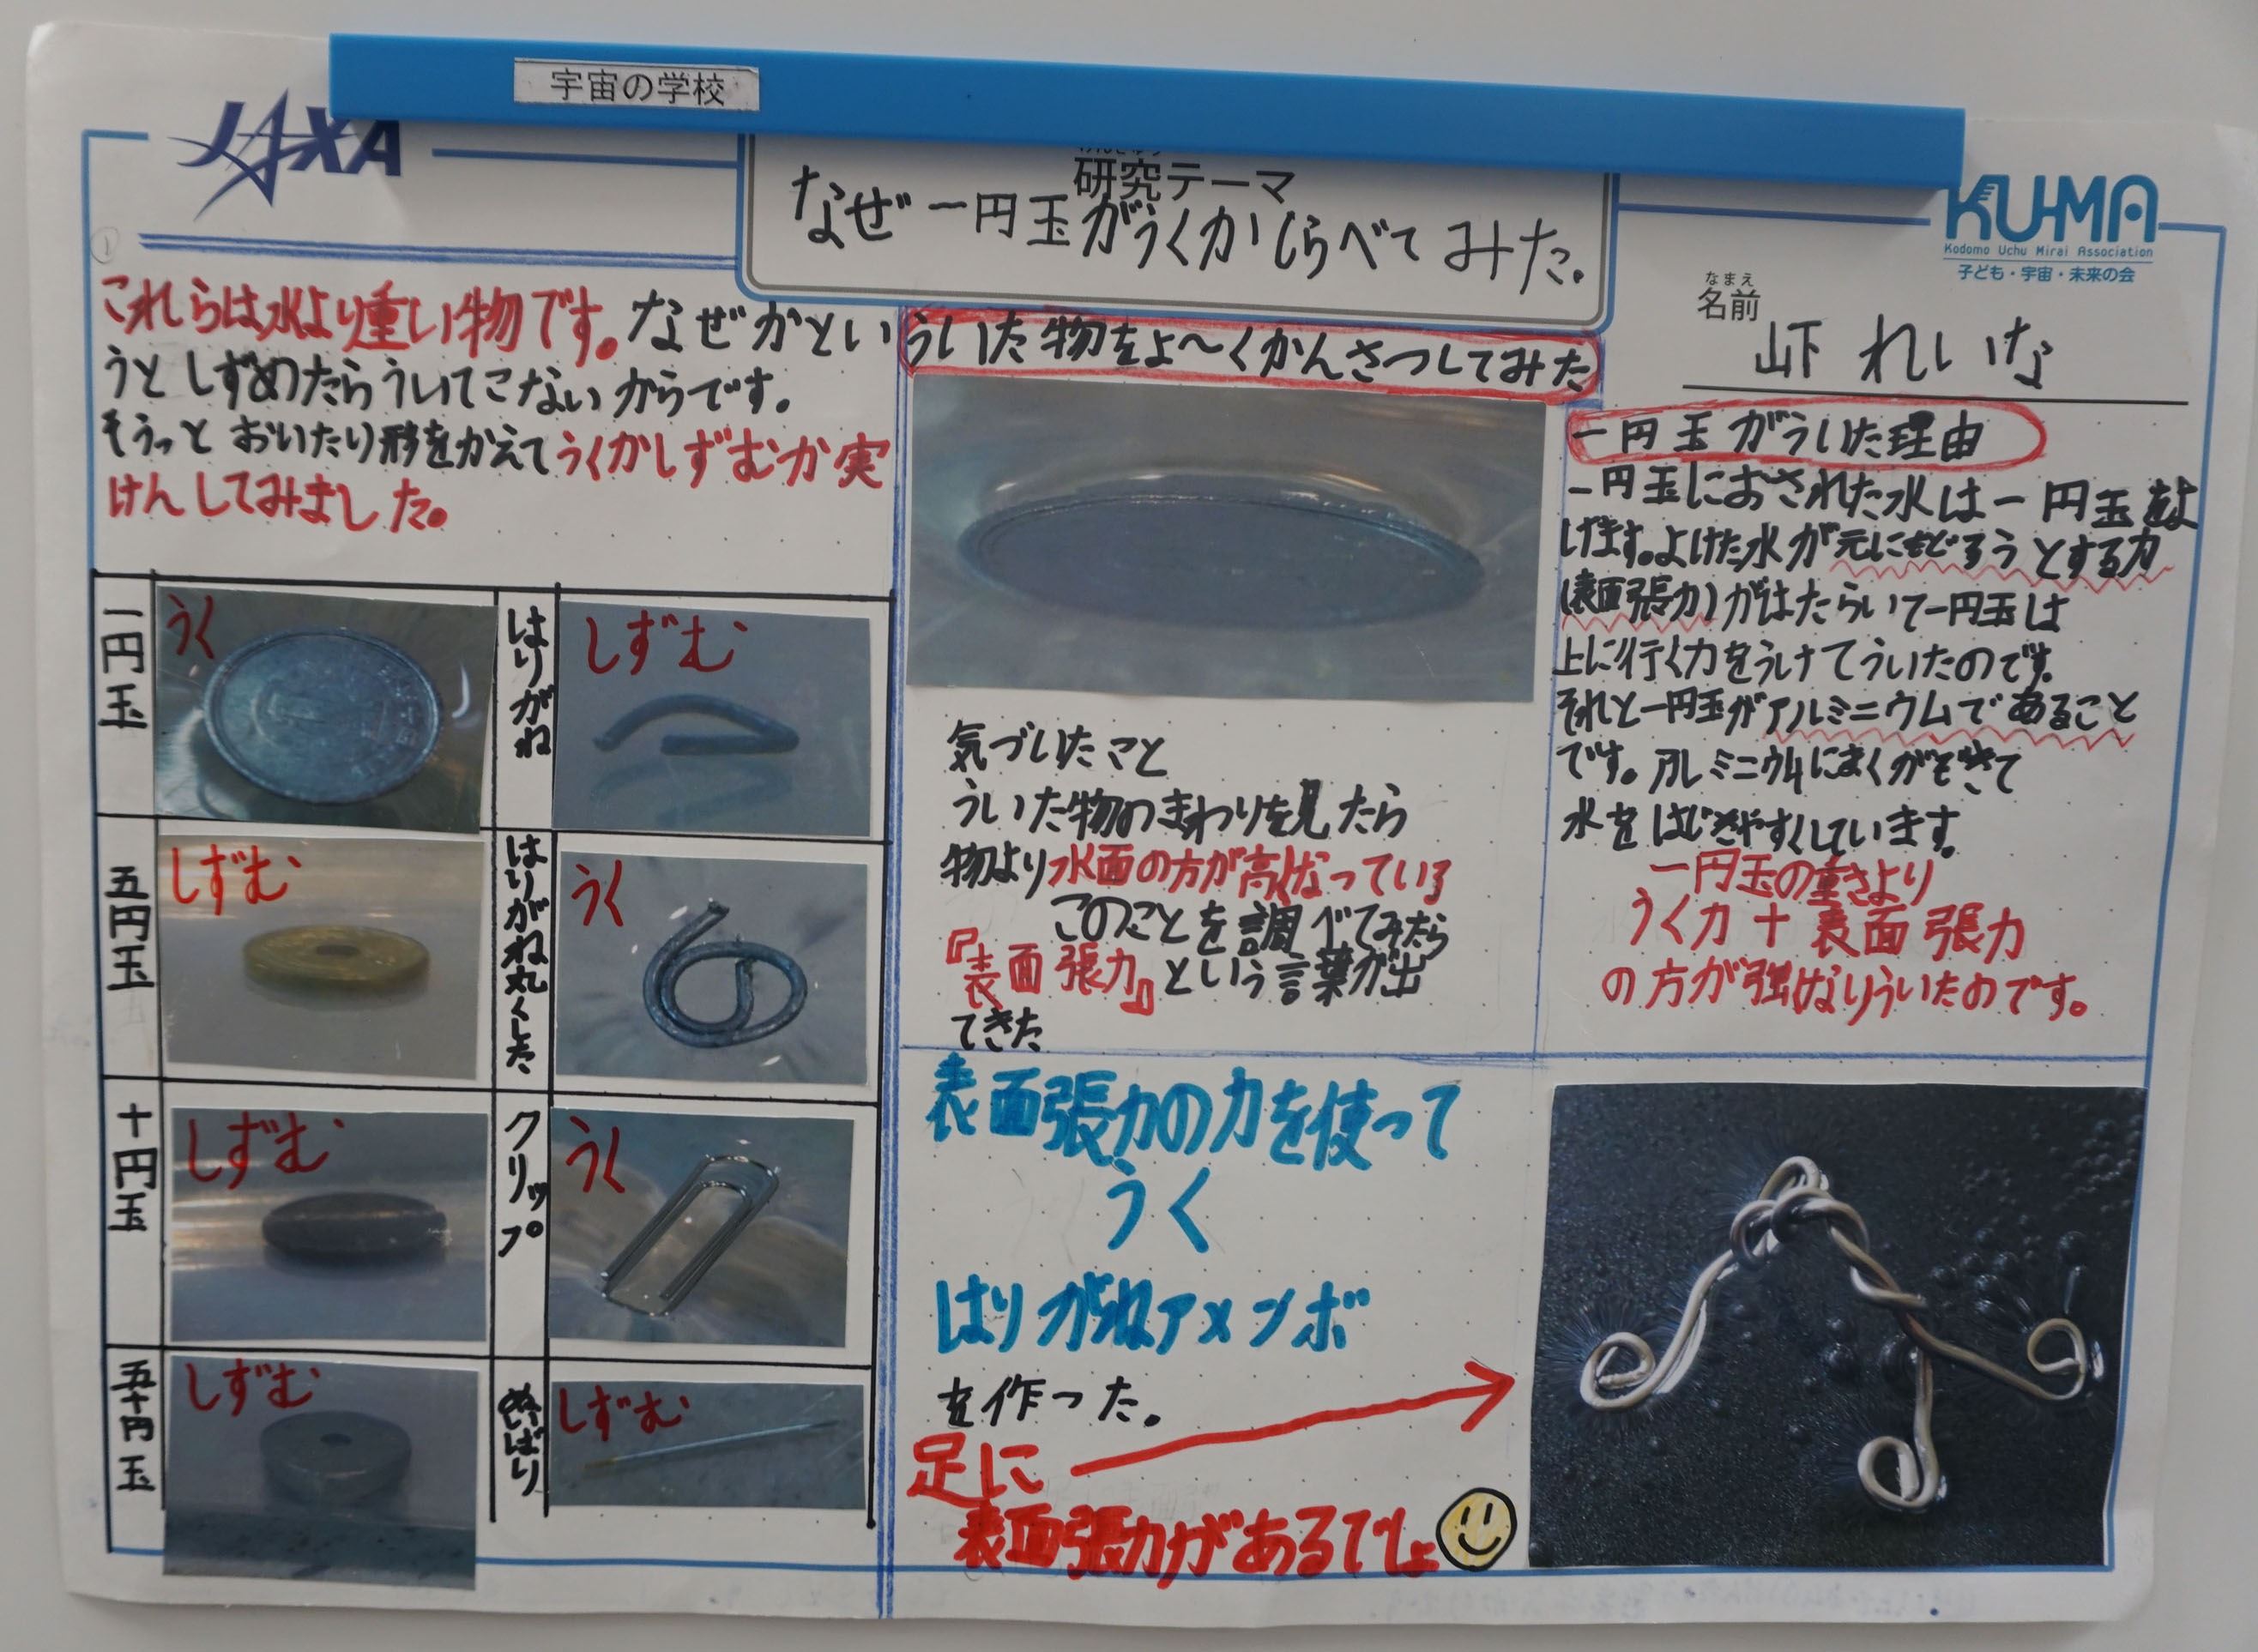 宇宙の学校
JAXA
研究テーマ
なぜ一円玉がうくかしらべてみた。
KU-MA
Kodomo Uchu Mirai Association
子ども・宇宙・未来の会
なまえ
名前
れいな
これらは水より重い物です。なぜかとい
うとしずめたらういてこないからです。
そうっとおいたり形をかえてうくかしずむか実
けんしてみました。
一円玉
うく
はりがね
しずむ
五円玉
しずむ
はりがね丸くした
うく
十円玉
しずむ
クリップ
うく
五十円玉
しずむ
ぬいばり
しずむ
ういた物をよ〜くかんさつしてみた
気づいたこと
ういた物のまわりを見たら
物より水面の方が高くなっている
このことを調べてみたら
『表面張力』という言葉が出
てきた
一円玉がういた理由
一円玉におされた水は一円玉をよ
げます。よけた水が元にもどろうとする力
(表面張力)がはたらいて一円玉は
上に行く力をうけてういたのです。
それと一円玉がアルミニウムであること
です。アルミニウムにまくができて
水をはじきやすくしています。
一円玉の重さより
うく力+表面張力
の方が強くなりういたのです。
表面張力の力を使って
うく
はりがねアメンボ
を作った。
足に
表面張力があるでしょ